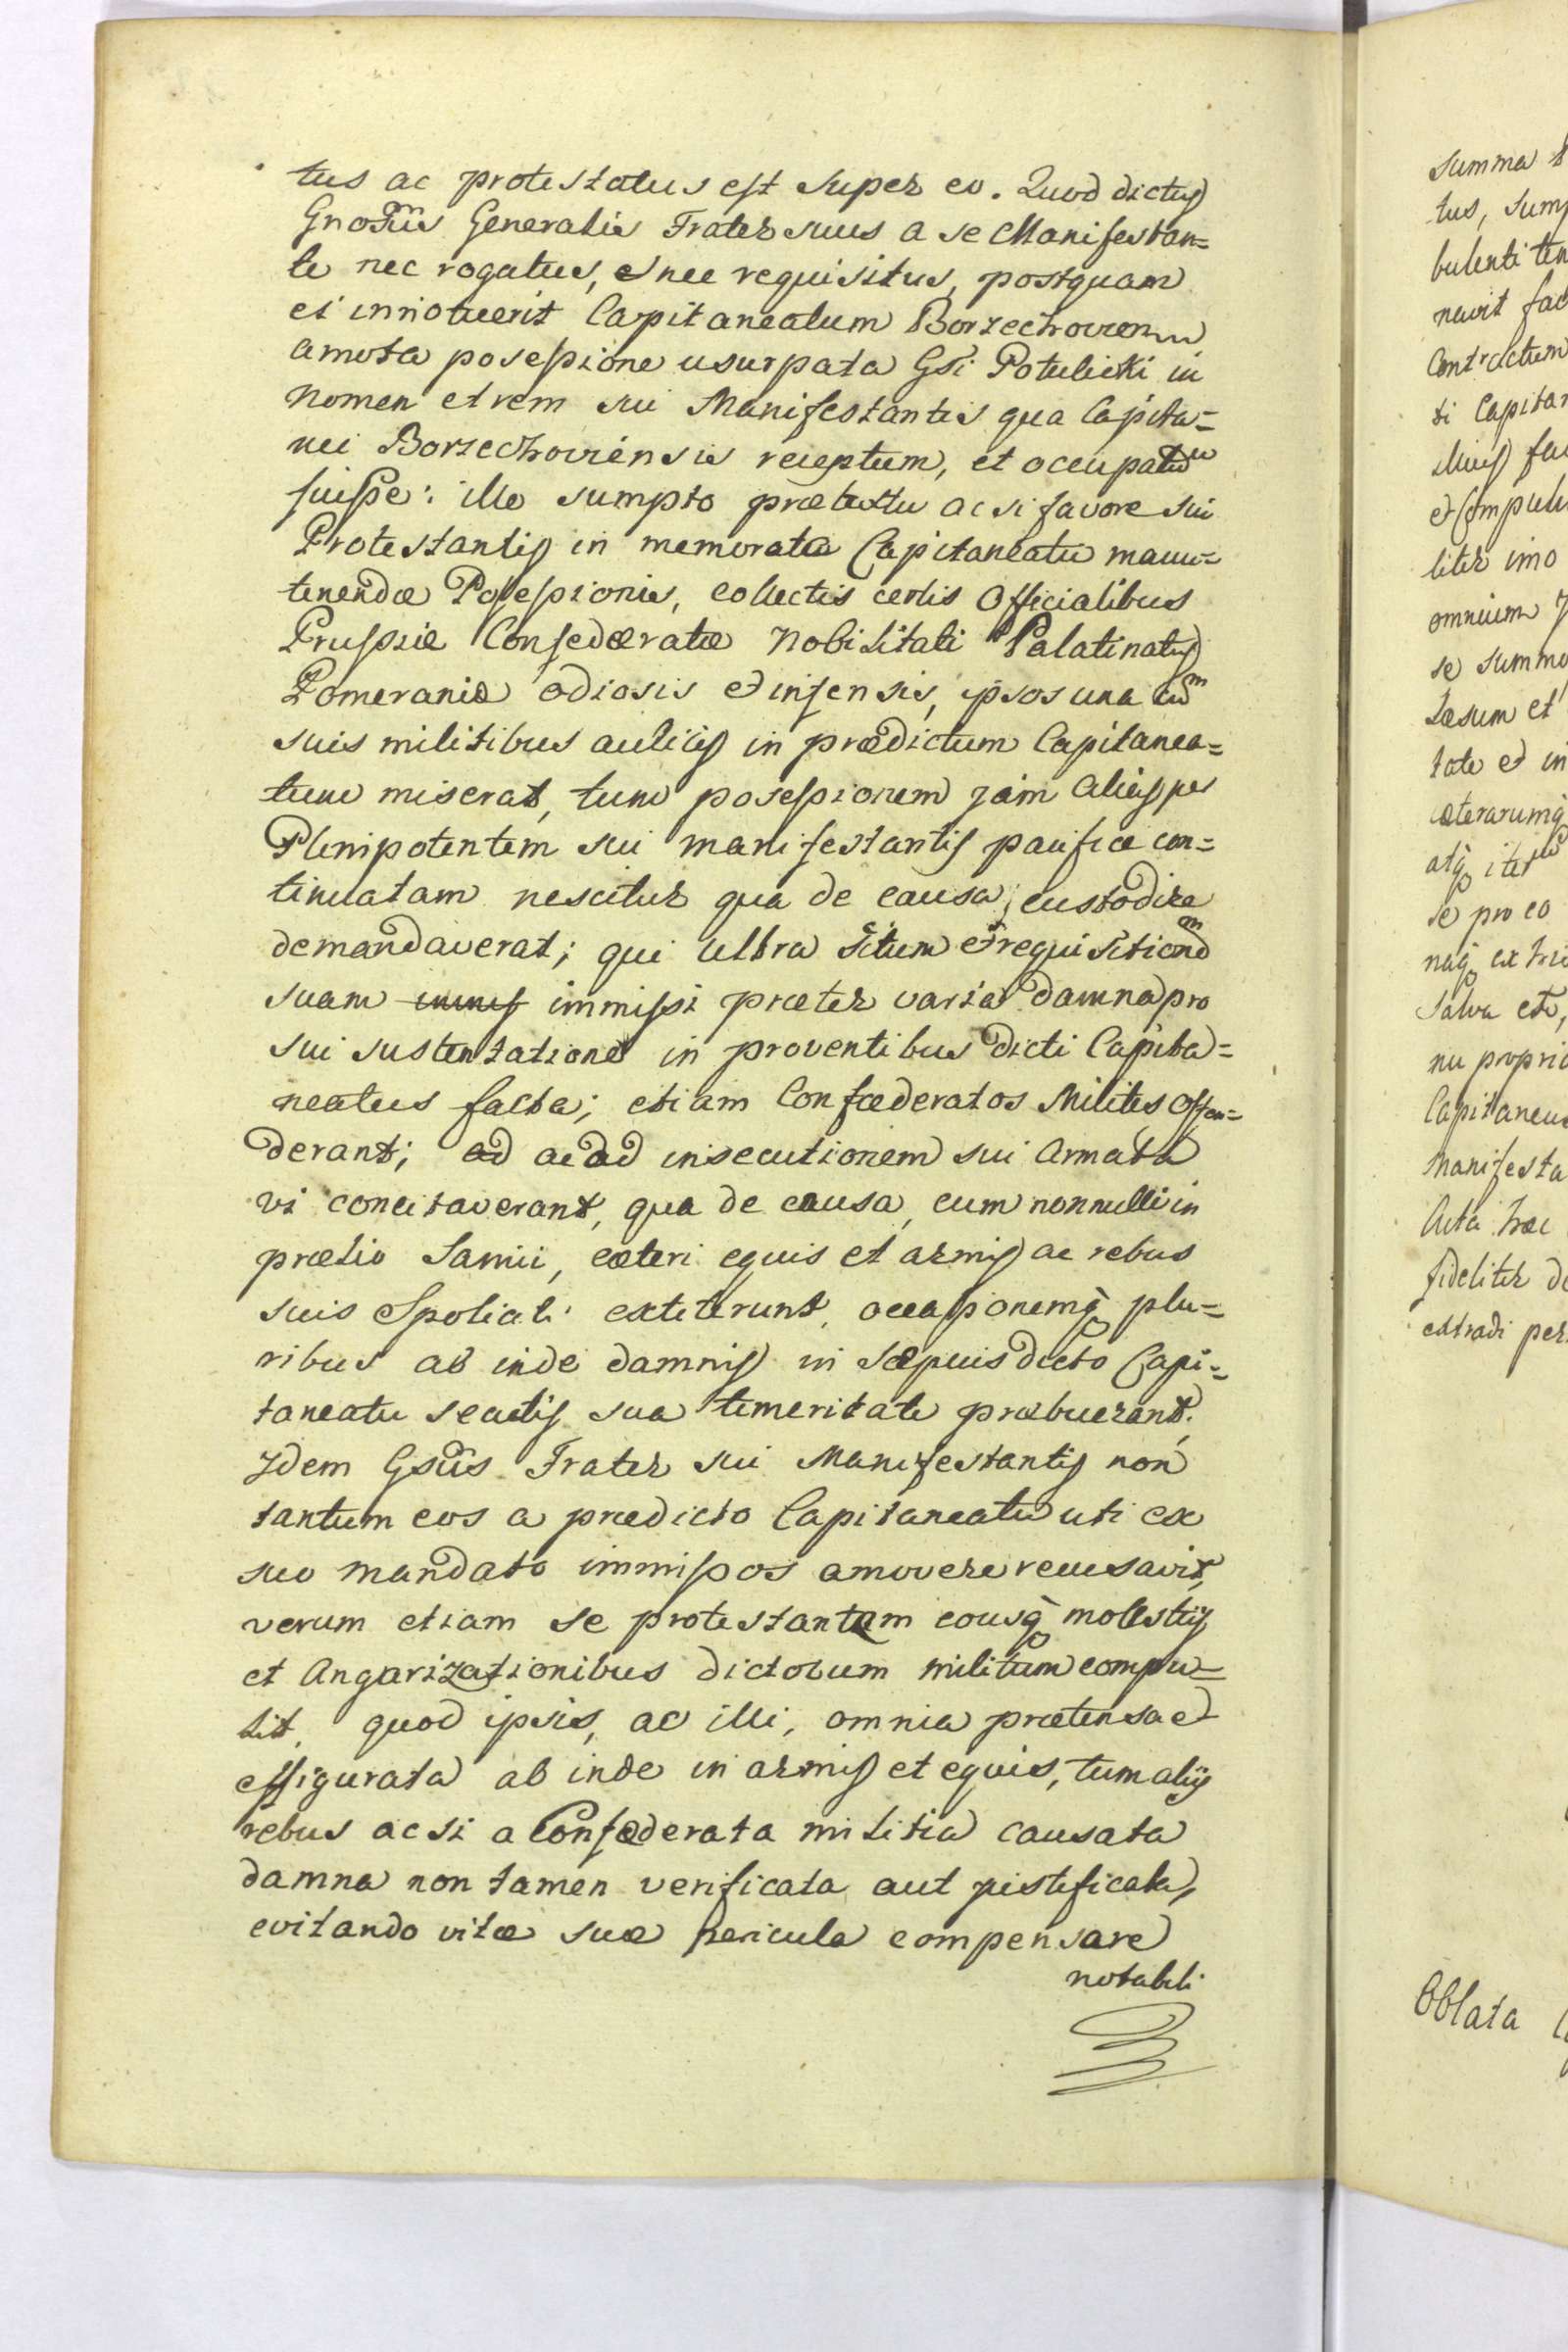 tus ac protestatus est super eo. Quod dictus
Gnosus Generalis Frater suus a se Manifestan=
te nec rogatus, et nec requisitus, postquam
ei innotuerit Capitaneatum Borzechoviens
amota possessione usurpata Gsi Potulicki in
Nomen et rem sui Manifestantis qua Capita=
nei Borzechoviensis receptum, et occupatum
fuisse: ille sumpto prætextu ac si favore sui
Protestantis in memorato Capitaneatu manu=
tenendæ Possessionis, collectis certis Officialibus
Prussiæ Confœderatæ Nobilitati Palatinatus
Pomeraniæ odiosis et infensis, ipsos una cum
suis militibus aulicis in prædictum Capitanea=
tum miserat, tum possessionem jam alias per
Plenipotentem sui manifestantis pacifice con=
tinuatam nescitur qua de causa, custodire
demandaverat; qui ultra scitum et requisitionem
suam immissi præter varia damna pro
sui sustentatione in proventibus dicti Capita=
neatus facta; etiam Confœderatos Milites offen=
derant; ad ac ad insecutionem sui armata
vi concitaverant, qua de causa, cum nonnulli in
prælio Samii, cæteri equis et armis ac rebus
suis spoliati extiterunt, occasionemq plu=
ribus ab inde damnis in sæpius dicto Capi=
taneatu secutis sua temeritate præbuerant.
Idem Gsus Frater sui Manifestantis non
tantum eos a prædicto Capitaneatu uti ex
suo mandato immissos amovere recusavit,
verum etiam se protestantem eousq molestiis
et Angarizationibus dictorum militum compu=
lit, quod ipsis, ac illi, omnia prætensa et
effigurata ab inde in armis et equis, tum aliis
rebus ac si a Confœderata militia causata
damna non tamen verificata aut justificata,
evitando vitæ suæ pericula compensare
notabili
summa
tus, sum
bulenti ten
navit fac
Contractum
ti Capitan
et Compul
liter imo
omnium
se summo
Læsum et
tate et in
cæterarumq
atq iterum
se pro eo
naq extra
Salva etc,
nu propria
Capitaneus
Manifesta
Acta hæc
fideliter de
extradi per
Oblata